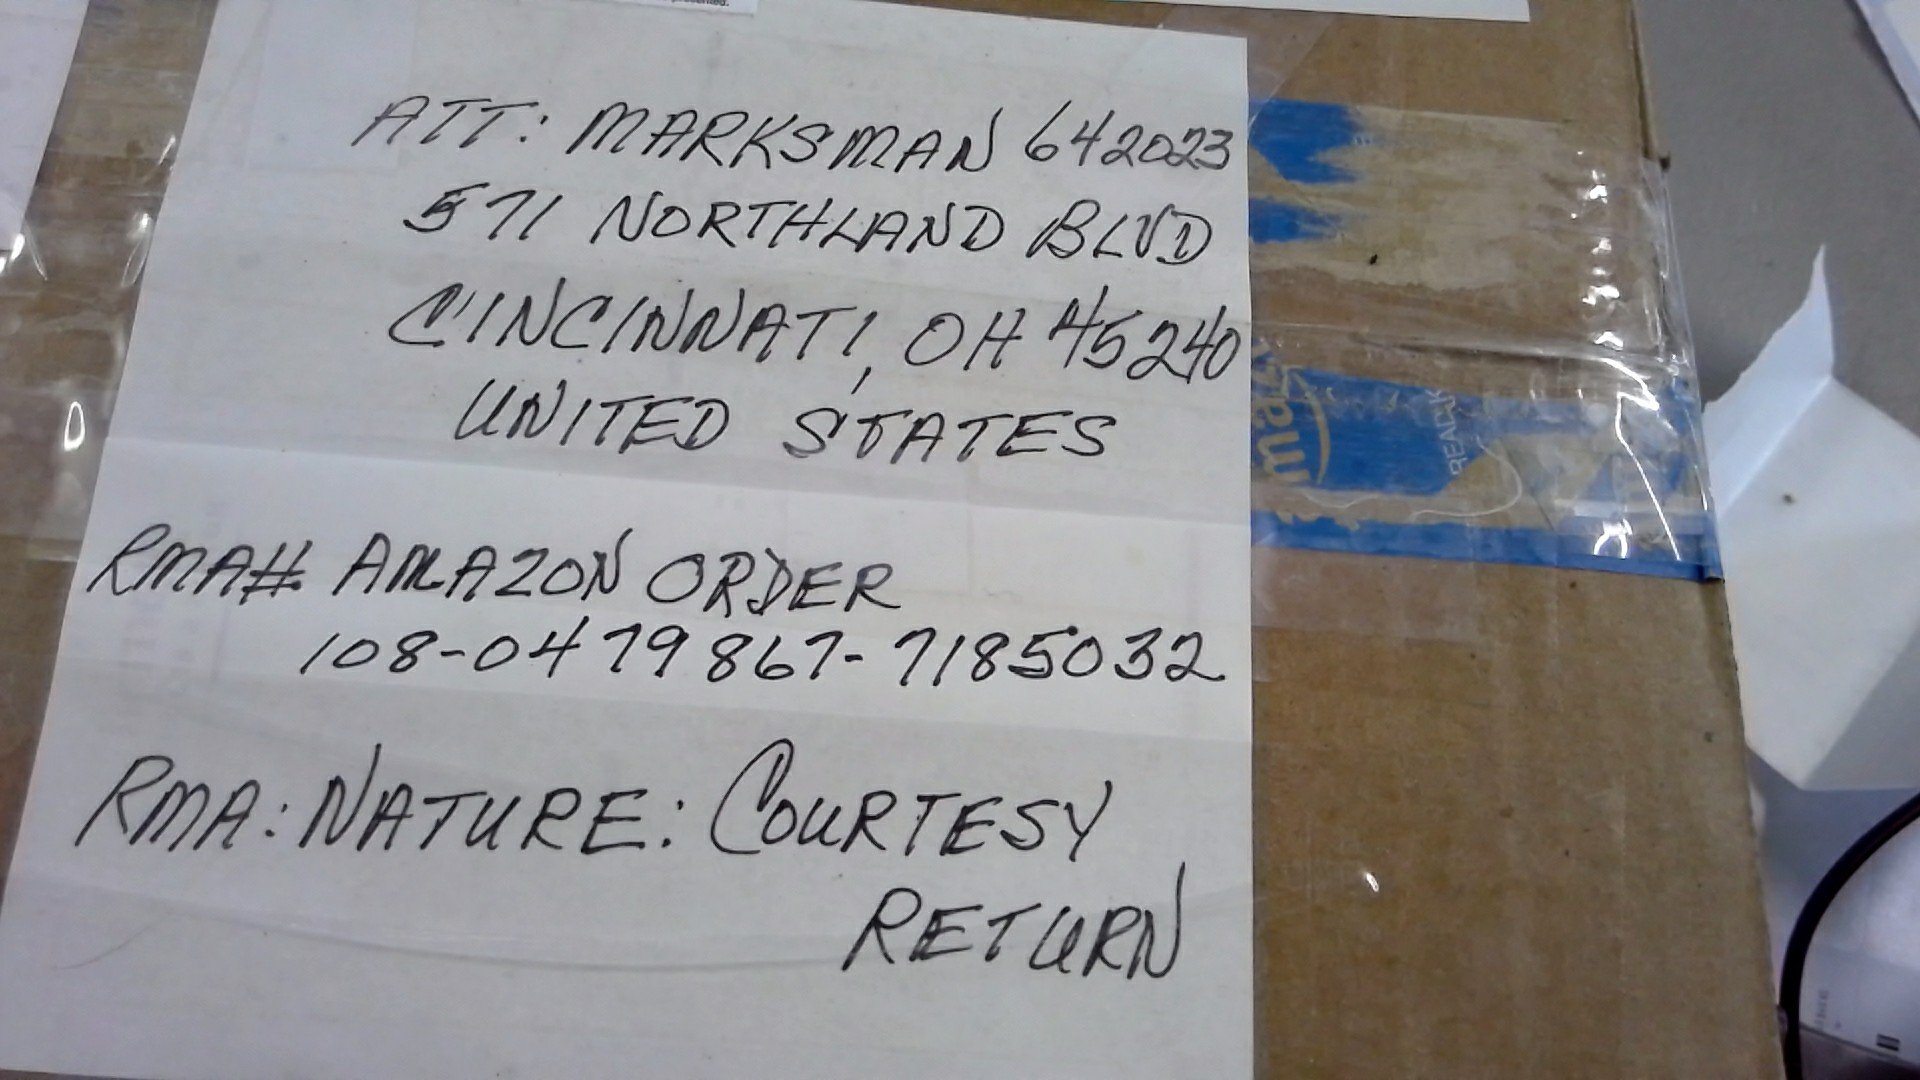 ATT: MARKSMAN 642023
571 NORTHLAND BLVD
CINCINNATI, OH 45240
UNITED STATES
RMA# AMAZON ORDER
108-0479867-7185032
RMA: NATURE: COURTESY
RETURN